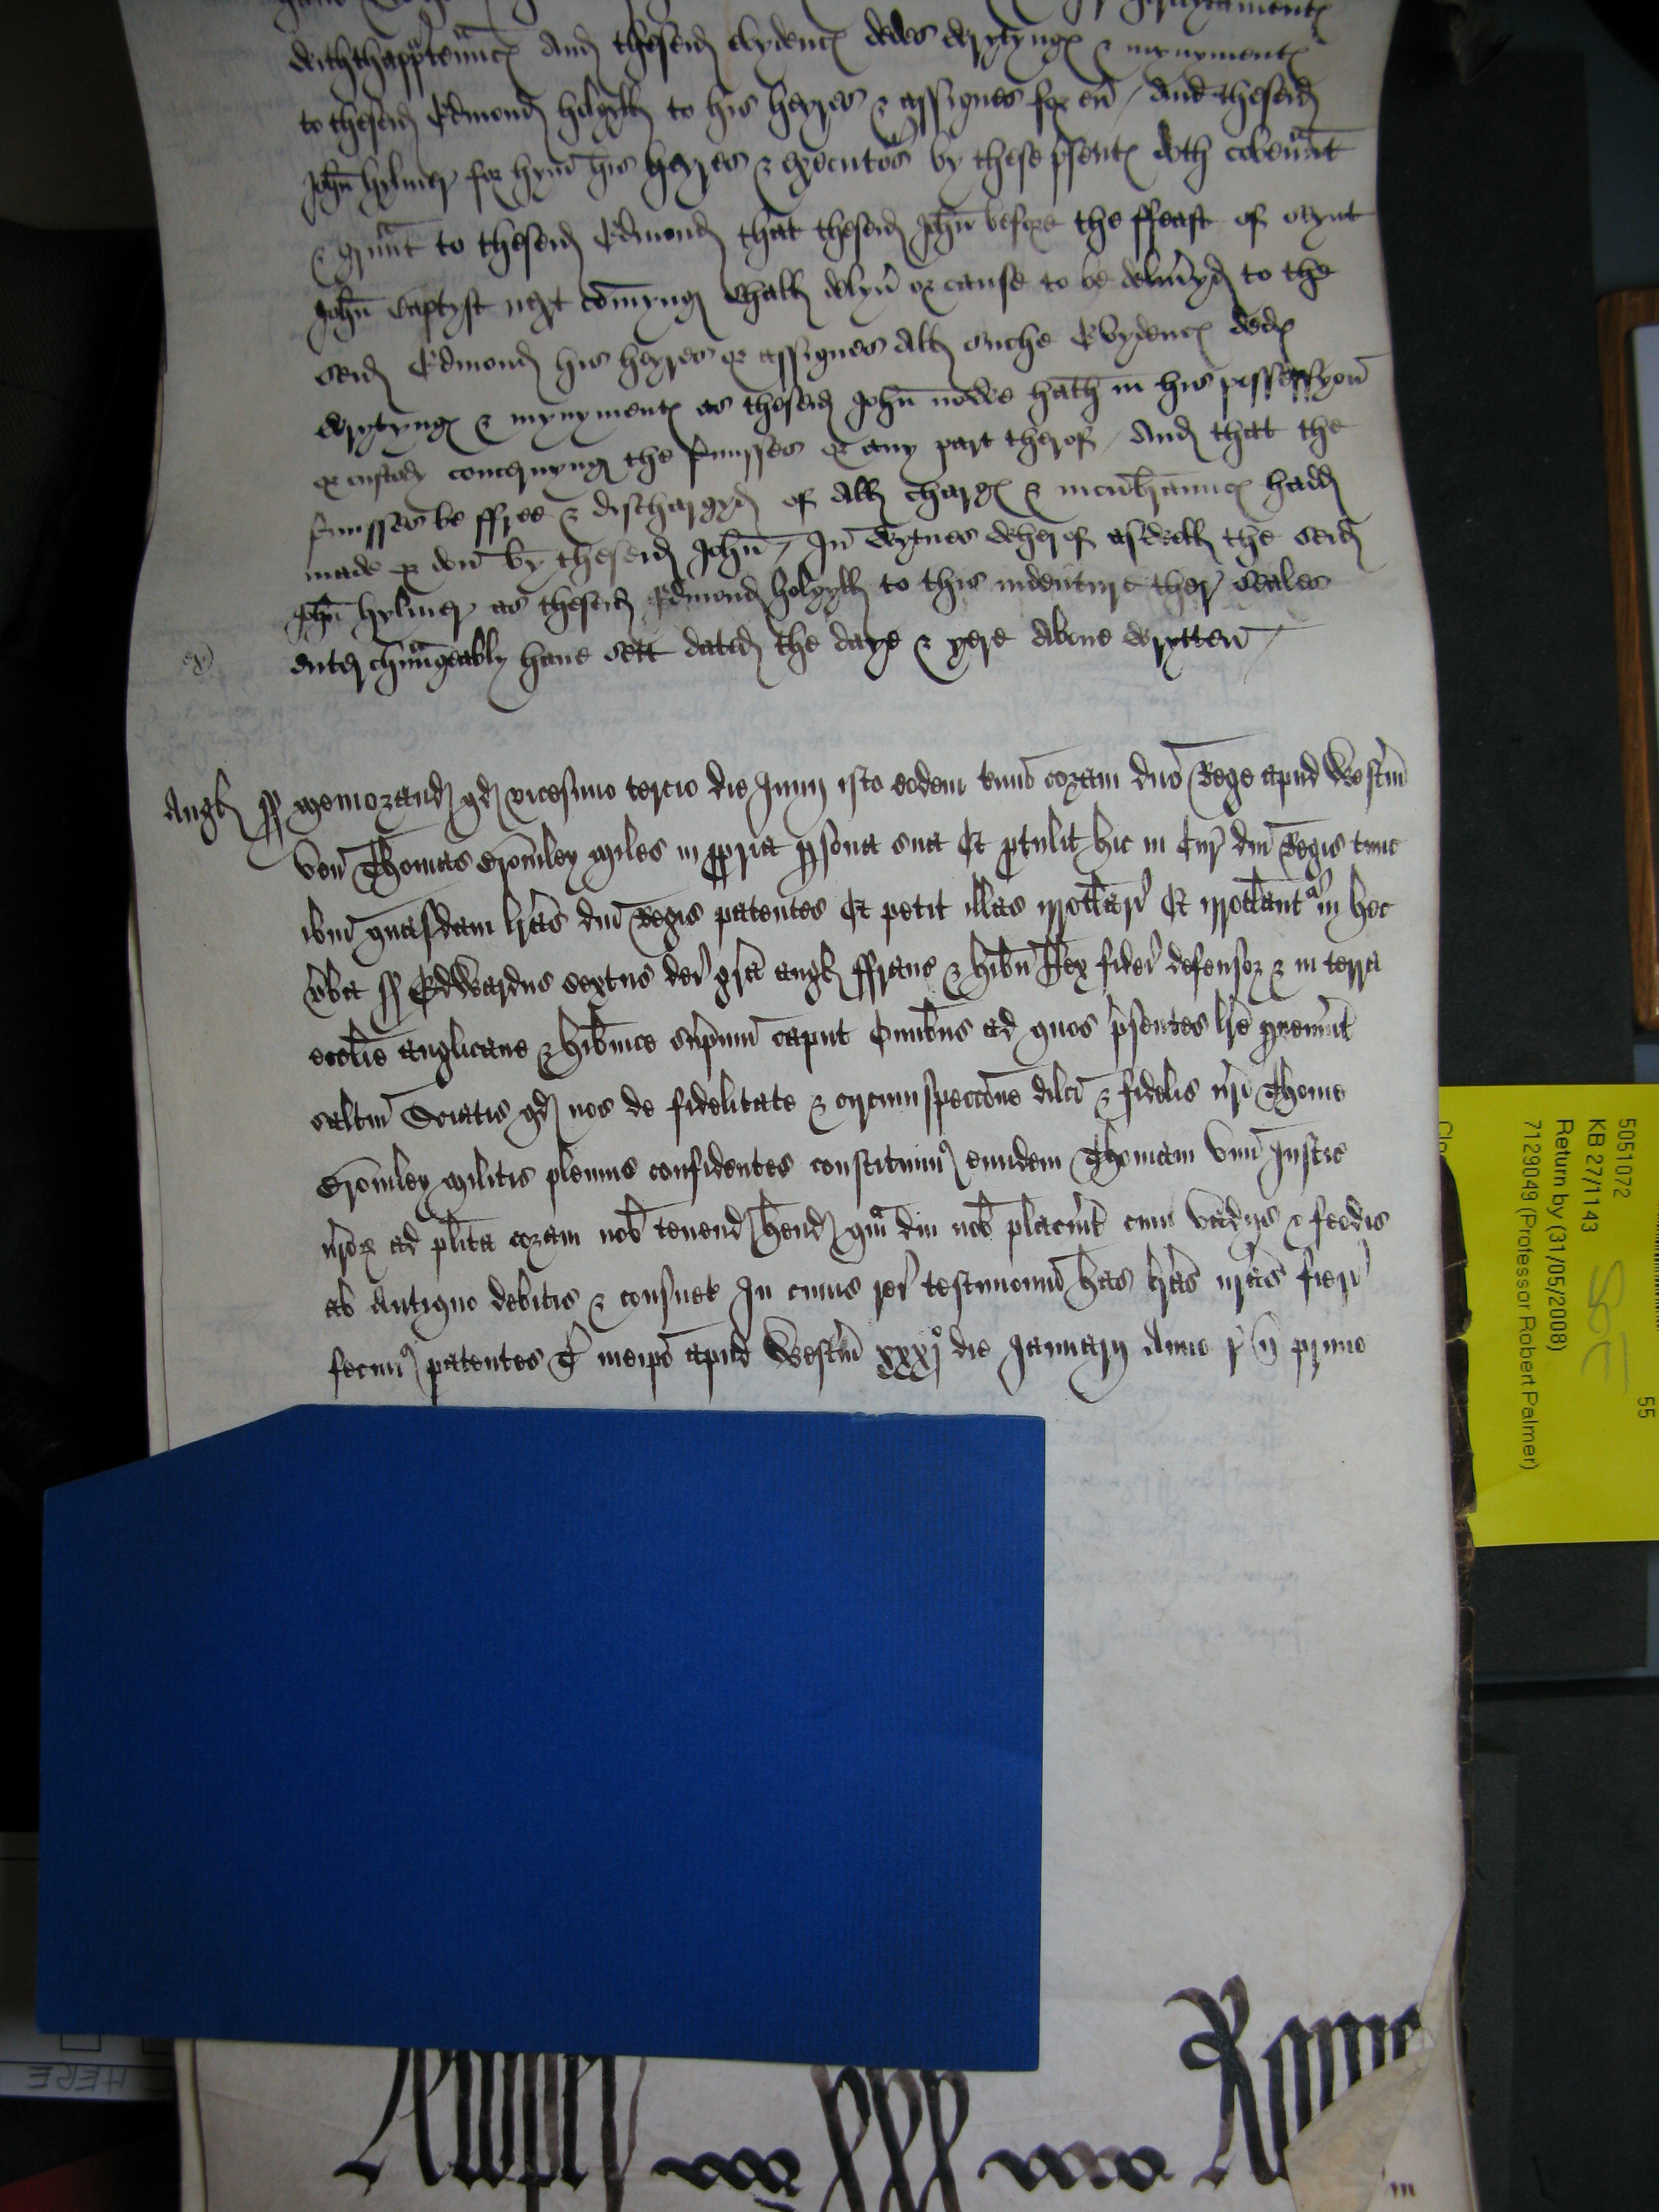 withthapp'tenñcϵ And theseid evydencϵ dedes wrytyngϵ & mynymentϵ
to theseid Edmond holgyll to his heyres & assignes for eũ / And theseid
John̄ hylmer for hym̄ his heyres & executors by these p̃sentϵ doth coveñnt
& grãnt to theseid Edmond that theseid John̄ before the ffeast of Seynt
John̄ Baptyst next com̄yng shall delyũ or cause to be delyũyd to the
seid Edmond his heyres or assignes All suche Evydencϵ dedϵ
wrytyngϵ & mynymentϵ as theseid John̄ nowe hath in his possessyon̄
or custody concernyng the p̃misses or any part therof / And that the
p̃misses be ffree & dischargyd of All chargϵ & incũbrãncϵ hadd
made or don̄ by theseid John̄ / In Wytnes wherof aswell the seid
John̄ hylmer as theseid Edmond holgyll to this indenture ther seales
enterchãngeably have sett dated the daye & yere Above wrytten̄ /
Angl ss Memorand qd vicesimo tercio die Junij isto eodem t'mio coram dño Rege apud Westm̄
ven̄ Thomas Brom̄ley Miles in ppria psona sua Et ptulit hic in Cur̃ dñi Regis tunc
ib̃m quasdam l'ras dñi Regis patentes Et petit illas irrotlari Et irrotlantr in hec
v̄ba ss Edwardus sextus dei gr̃a Angl ffranc & hib̃n Rex fidei defensor & in terra
ecclie Anglicane & hib̃nice sup̃mu caput Om̄ibus ad quos p̃sentes l're pvenerint
saltm̄ Sciatis qd nos de fidelitate & circumspeccõne dilc̃i & fidelis nr̃i Thome
Brom̄ley Militis plenius confidentes constituim9 eundem Thomam Unũ Justic
nr̃oꝝ ad plita coram nob̃ tenend h̃end qm̃ diu nob̃ placũit cum vadijs & feodis
ab antiquo debitis & consuet In cuius rei testimoniũ has l'ras nr̃as fieri
fecim9 patentes T meip̃o apud Westm̄ xxxjo die Januarij Anno r̃ ñ primo
5051072
KB 27/1143
Return by (31/05/2008)
7129049 (Professor Robert Palmer)
55
HERE